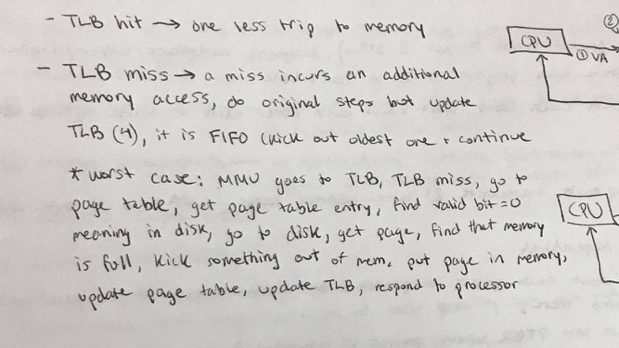 - TLB hit → one less trip to memory
- TLB miss → a miss incurs an additional
memory access, do original steps but update
TLB (4), it is FIFO (kick out oldest one + continue
* worst case: MMU goes to TLB, TLB miss, go to
page table, get page table entry, find valid bit=0
meaning in disk, go to disk, get page, find that memory
is full, kick something out of mem, put page in memory,
update page table, update TLB, respond to processor
CPU
① VA
②
CPU